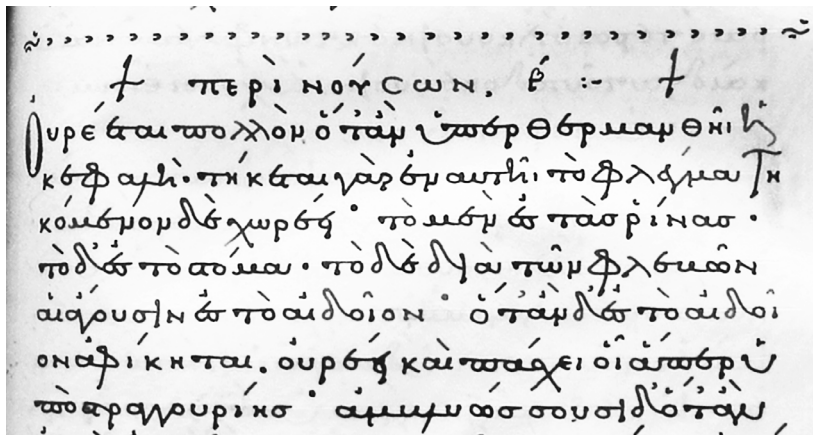 περὶ νούσων. β΄ :-
Οὐρέεται πολλὸν ὅταν ὑπερθερμανθῆι ἡ
κεφαλὴ· τήκεται γὰρ ἐν αὐτῆι· τὸ φλέγμα τη
κόμενον δὲ χωρέει· τὸ μὲν ἐς τὰς ῥίνας·
τὸ δ' ἐς τὸ στόμα· τὸ δὲ διὰ τῶν φλεβῶν
αἳ ἄγουσιν ἐς τὸ αἰδοῖον· ὅταν δ' ἐς τὸ αἰδοῖ
ον ἀφίκηται, οὐρέει καὶ πάσχει οἷά περ ὑ
πὸ στραγγουρίης· ἀμβλυώσσουσι δ' ὅταν